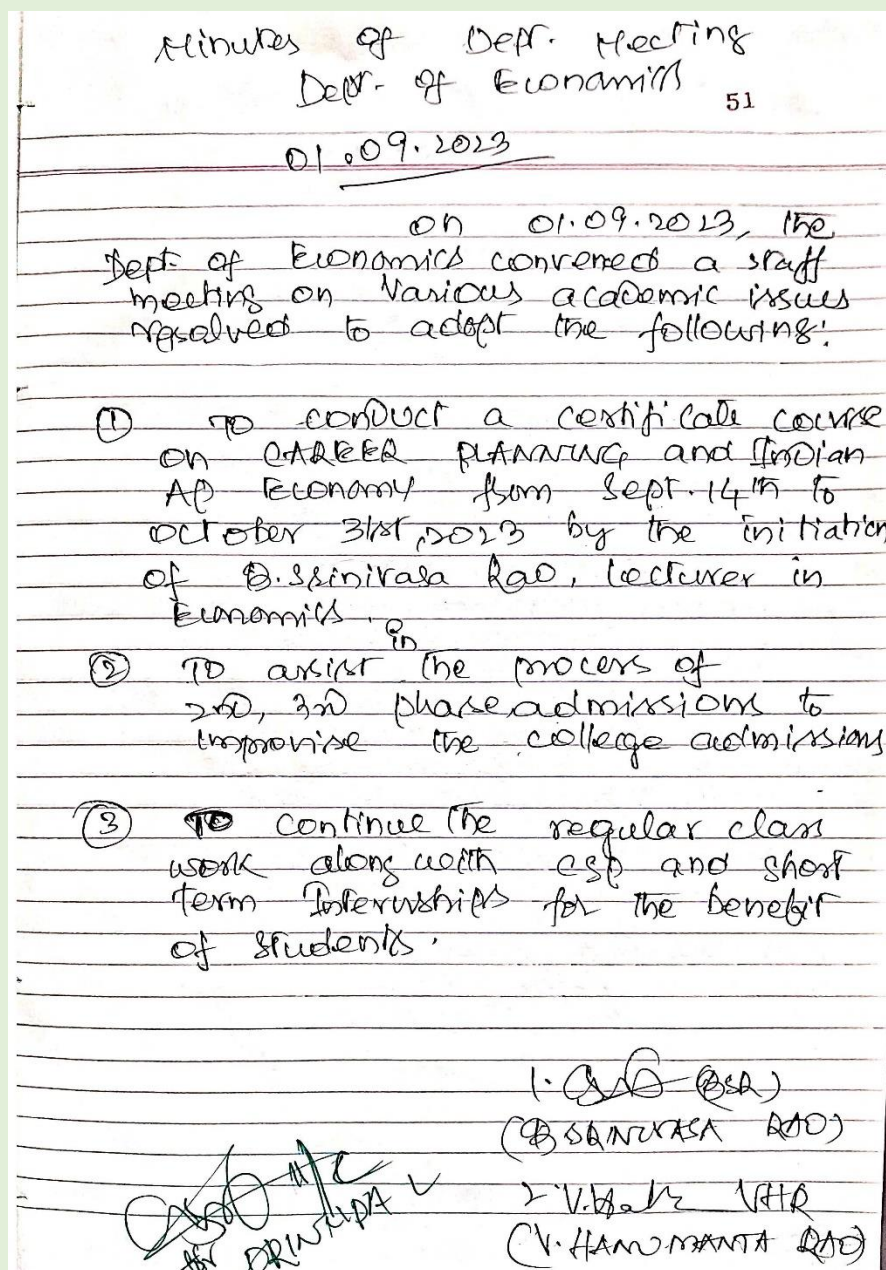 Minutes of Dept. Meeting
Dept. of Economics
51
01.09.2023
on 01.09.2023, the
Dept. of Economics convened a staff
meeting on Various academic issues
resolved to adopt the following:
① TO conduct a certificate course
on CAREER PLANNING and Indian
AP Economy from Sept. 14th to
October 31st, 2023 by the initiation
of B. Srinivasa Rao, Lecturer in
Economics.
in
② TO assist the process of
2nd, 3rd phase admissions to
improvise the college admissions
③ TO continue the regular class
work along with CSP and short
term Internships for the benefit
of students.
1. (BSR)
(B SRINIVASA RAO)
2. VHR
(V. HANUMANTA RAO)
PRINCIPAL